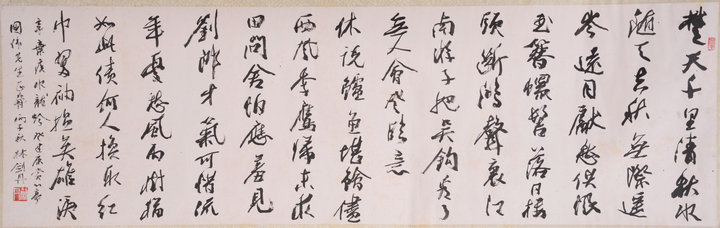 楚天千里清秋水
隨天去秋無際遥
岑遠目獻愁供恨
玉簪螺髻落日樓
頭斷鴻聲裏江
南游子把吴鈎看了
無人會登臨意
休説鱸魚堪鱠儘
西風季鷹歸未求
田問舍怕應羞見
劉郎才氣可惜流
年憂愁風雨樹猶
如此倩何人換取紅
巾翠袖搵英雄淚
辛棄疾水龍吟登建康賞心亭
國偉先生正 丙子秋 林劍丹